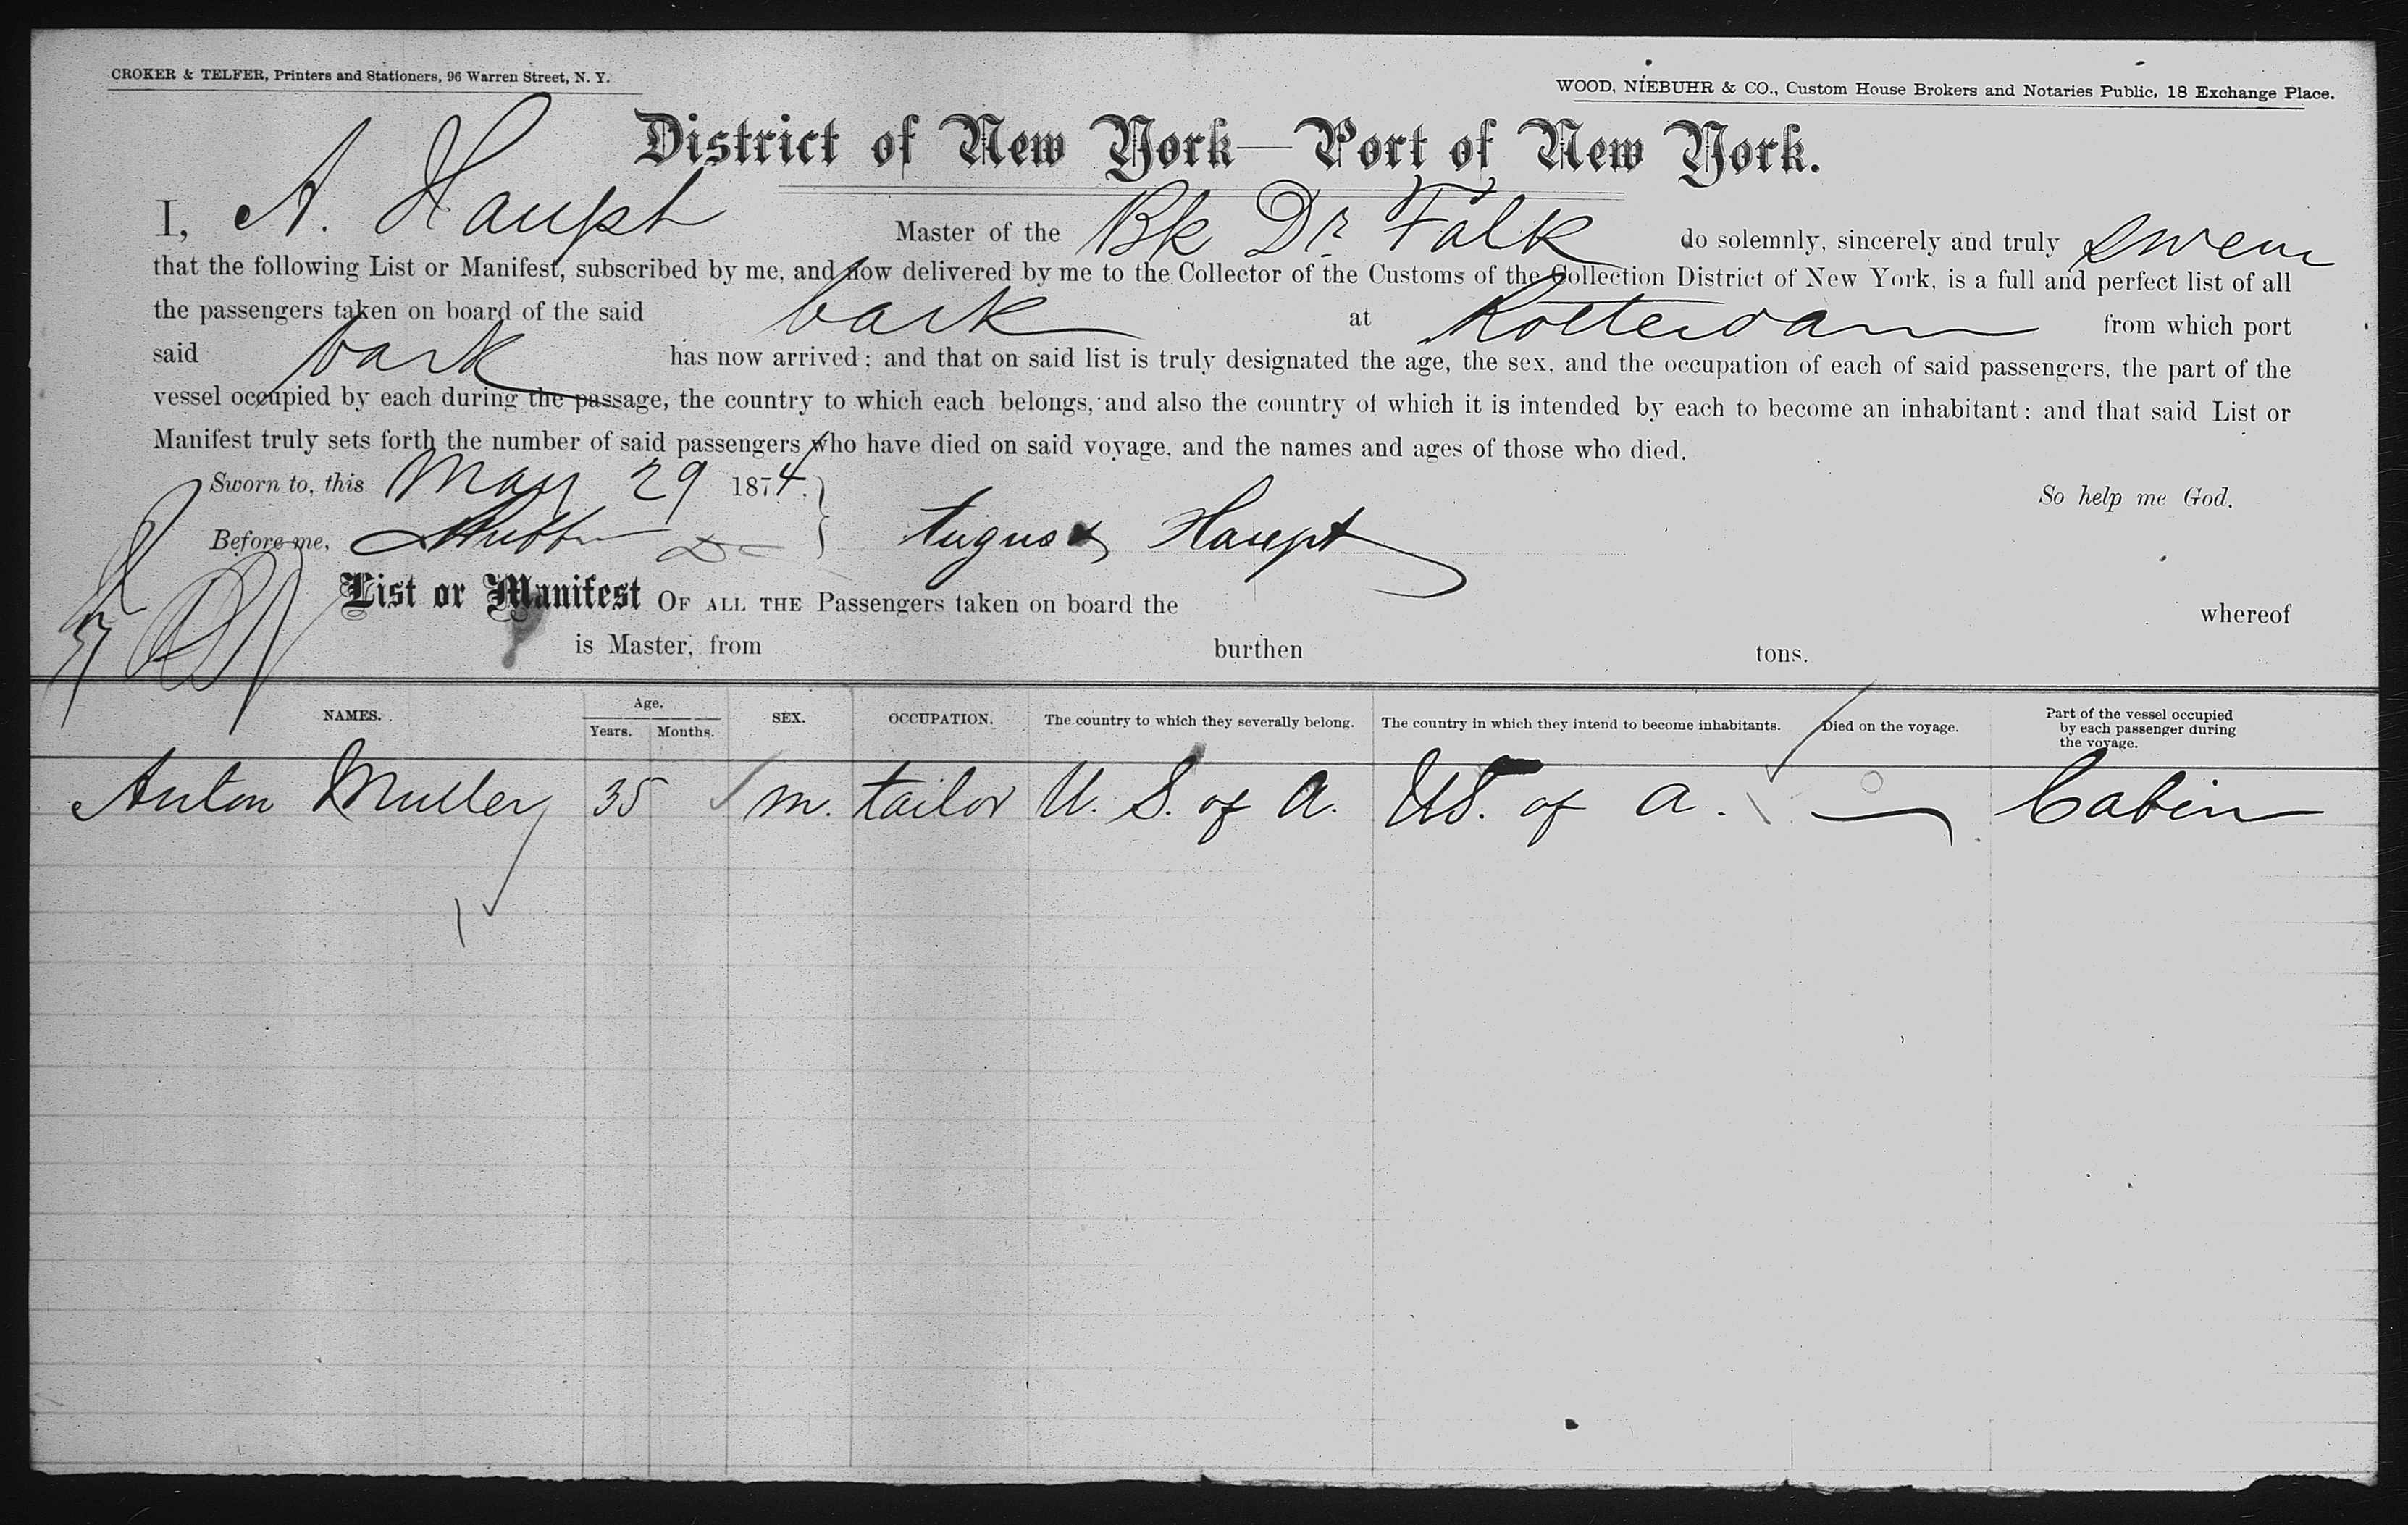 CROKER & TELFER, Printers and Stationers, 96 Warren Street, N. Y.
WOOD, NIEBUHR & CO., Custom House Brokers and Notaries Public, 18 Exchange Place.
District of New York—Port of New York.
I, A. Haupt Master of the Bk Dr. Falk do solemnly, sincerely and truly swear
that the following List or Manifest, subscribed by me, and now delivered by me to the Collector of the Customs of the Collection District of New York, is a full and perfect list of all
the passengers taken on board of the said bark at Rotterdam from which port
said bark has now arrived; and that on said list is truly designated the age, the sex, and the occupation of each of said passengers, the part of the
vessel occupied by each during the passage, the country to which each belongs, and also the country of which it is intended by each to become an inhabitant: and that said List or
Manifest truly sets forth the number of said passengers who have died on said voyage, and the names and ages of those who died.
Sworn to, this May 29 1874.
So help me God.
Before me, August Haupt
List or Manifest OF ALL THE Passengers taken on board the whereof
is Master, from burthen tons.
NAMES. Age. Years. Months. SEX. OCCUPATION. The country to which they severally belong. The country in which they intend to become inhabitants. Died on the voyage. Part of the vessel occupied by each passenger during the voyage.
Anton Muller 35 m. tailor U. S. of A. US. of A. — Cabin